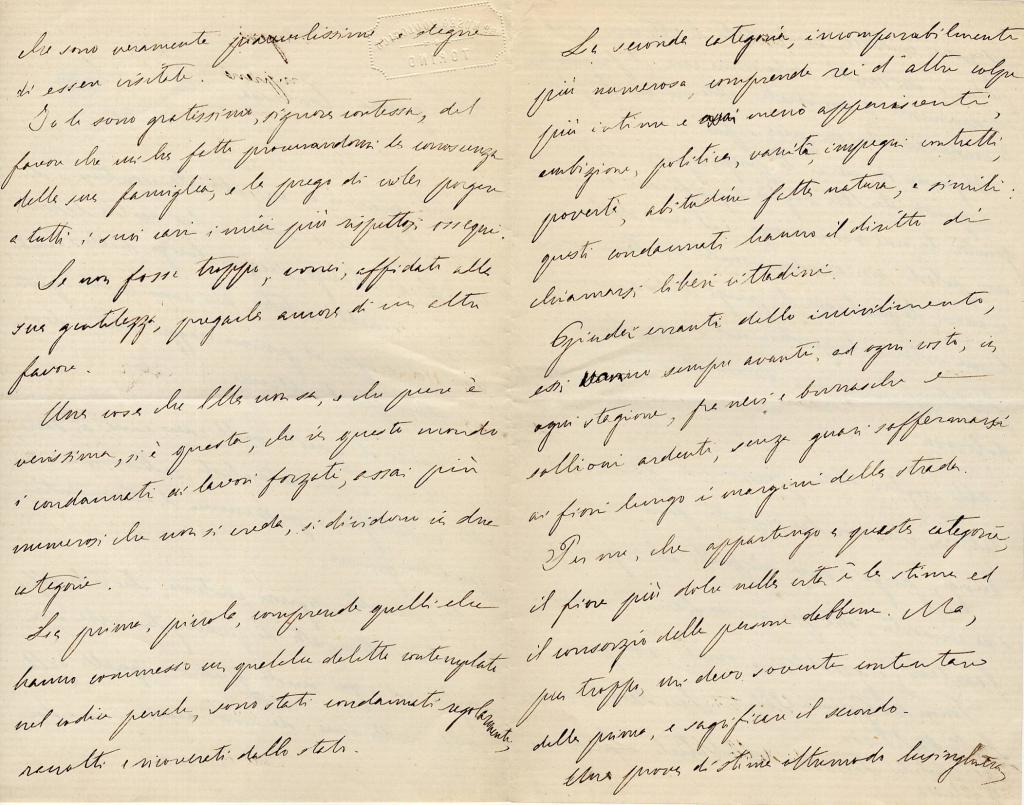 che sono veramente piacevolissime e degne
di essere visitate.
Io le sono gratissimo, signora contessa, del
favore che mi ha fatto procurandomi la conoscenza
della sua famiglia, e la prego di voler porgere
a tutti i suoi cari i miei più rispettosi ossequi.
Se non fosse troppo, vorrei, affidato alla
sua gentilezza, pregarla ancora di un altro
favore.
Una cosa che Ella non sa, e che pure è
verissima, si è questa, che in questo mondo
i condannati ai lavori forzati, assai più
numerosi che non si creda, si dividono in due
categorie.
La prima, piccola, comprende quelli che
hanno commesso un qualche delitto contemplato
nel codice penale, sono stati condannati regolarmente,
raccolti e ricoverati dallo stato.
La seconda categoria, incomparabilmente
più numerosa, comprende rei d'altre colpe
più intime e meno appariscenti,
ambizione, politica, vanità, impegni contratti,
povertà, abitudine fatta natura, e simili:
questi condannati hanno il diritto di
chiamarsi liberi cittadini.
Giudei erranti dello incivilimento,
essi vanno sempre avanti, ad ogni costo, in
ogni stagione, fra nevi e burrasche e
sollioni ardenti, senza quasi soffermarsi
ai fiori lungo i margini della strada.
Per me, che appartengo a questa categoria,
il fiore più dolce nella vita è la stima ed
il consorzio delle persone dabbene. Ma,
pur troppo, mi devo sovente contentare
della prima, e sagrificare il secondo.
Una prova di stima oltremodo lusinghiera
TORINO